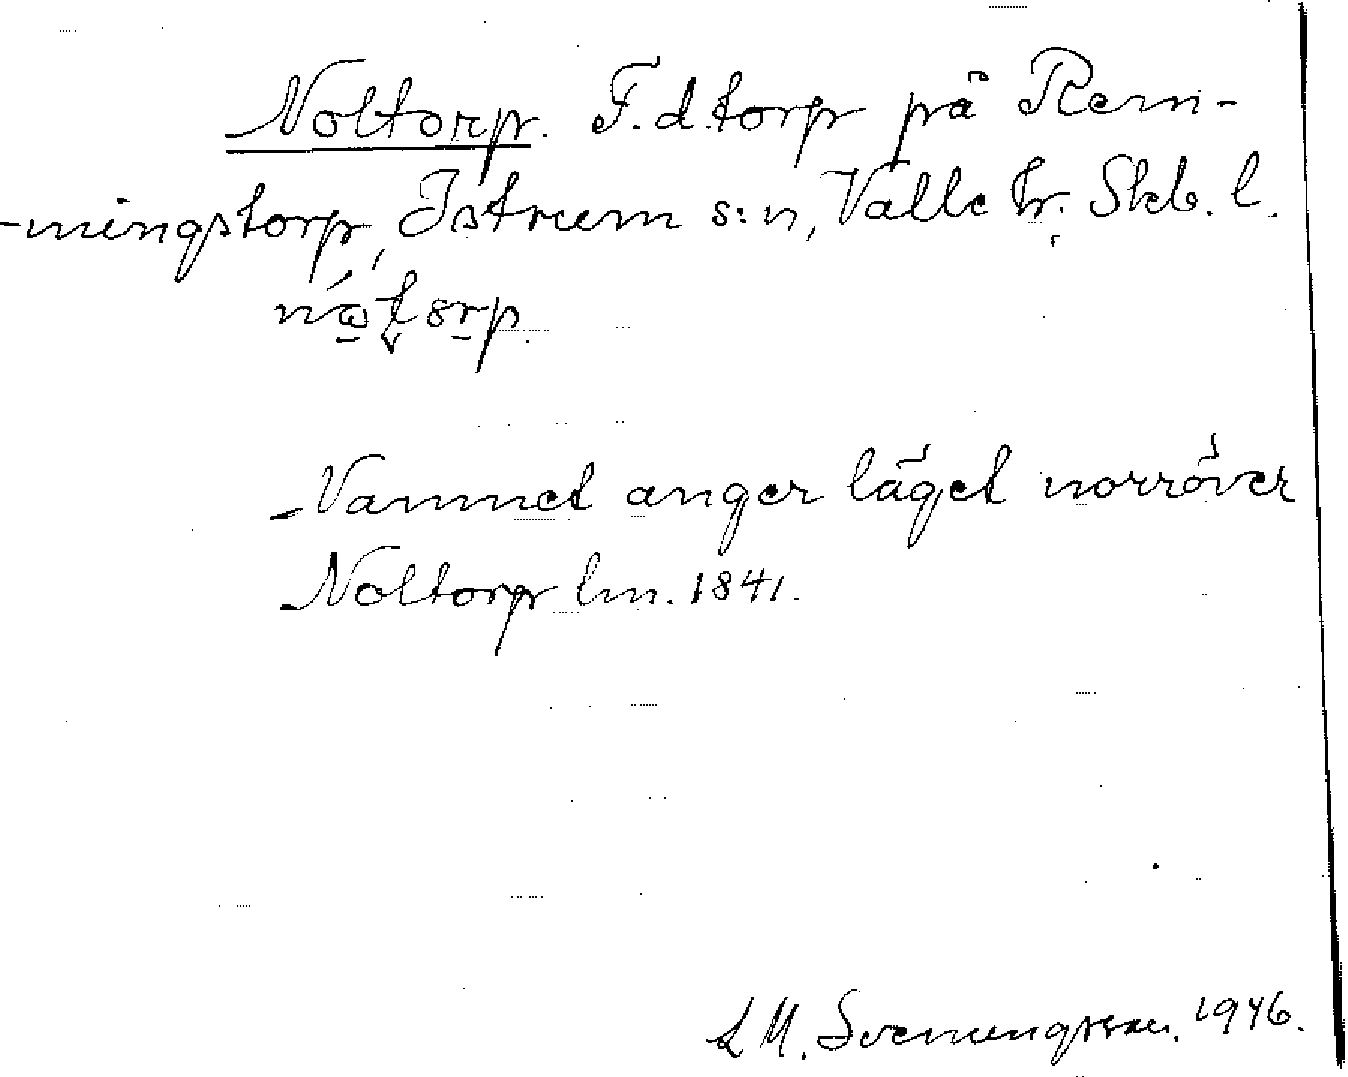 Noltorp. F.d. torp på Rem-
-mingstorp, Istrum s:n, Valle hr. Skb. l.
Namnet anger läget norröver
Noltorp lm. 1841.
L M. Svenungsson. 1946.